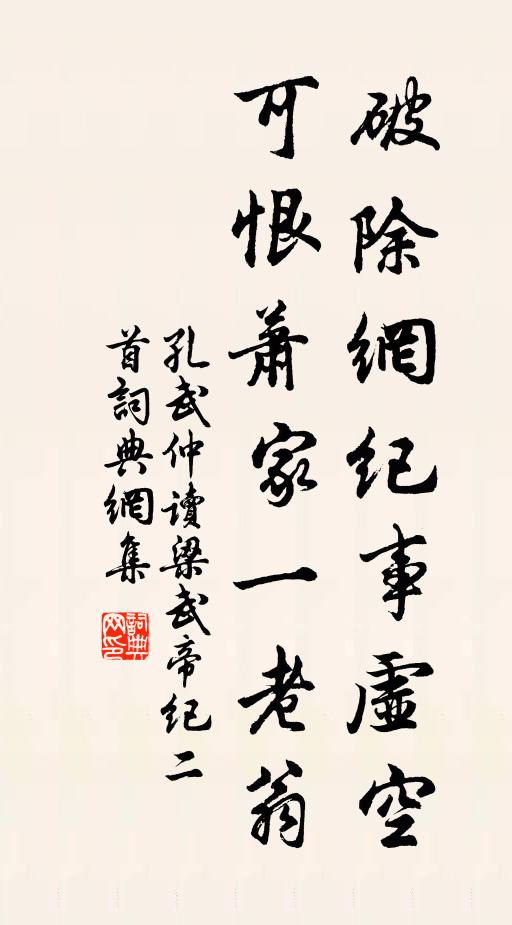 破除網紀事虛空
可恨蕭家一老翁
孔武仲讀梁武帝紀二
首詞典網集
詞典
网印